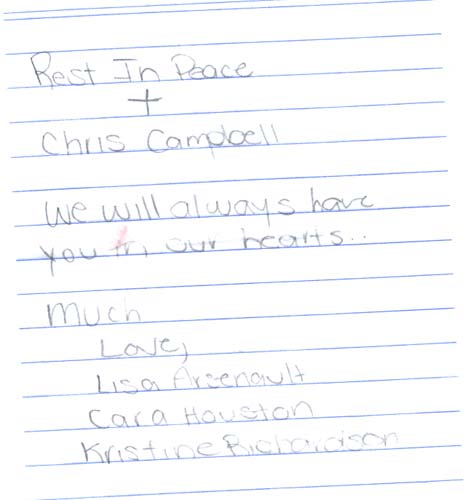 Rest In Peace
+
Chris Campbell
We will always have
you in our hearts..
Much
Love,
Lisa Arsenault
Cara Houston
Kristine Richardison